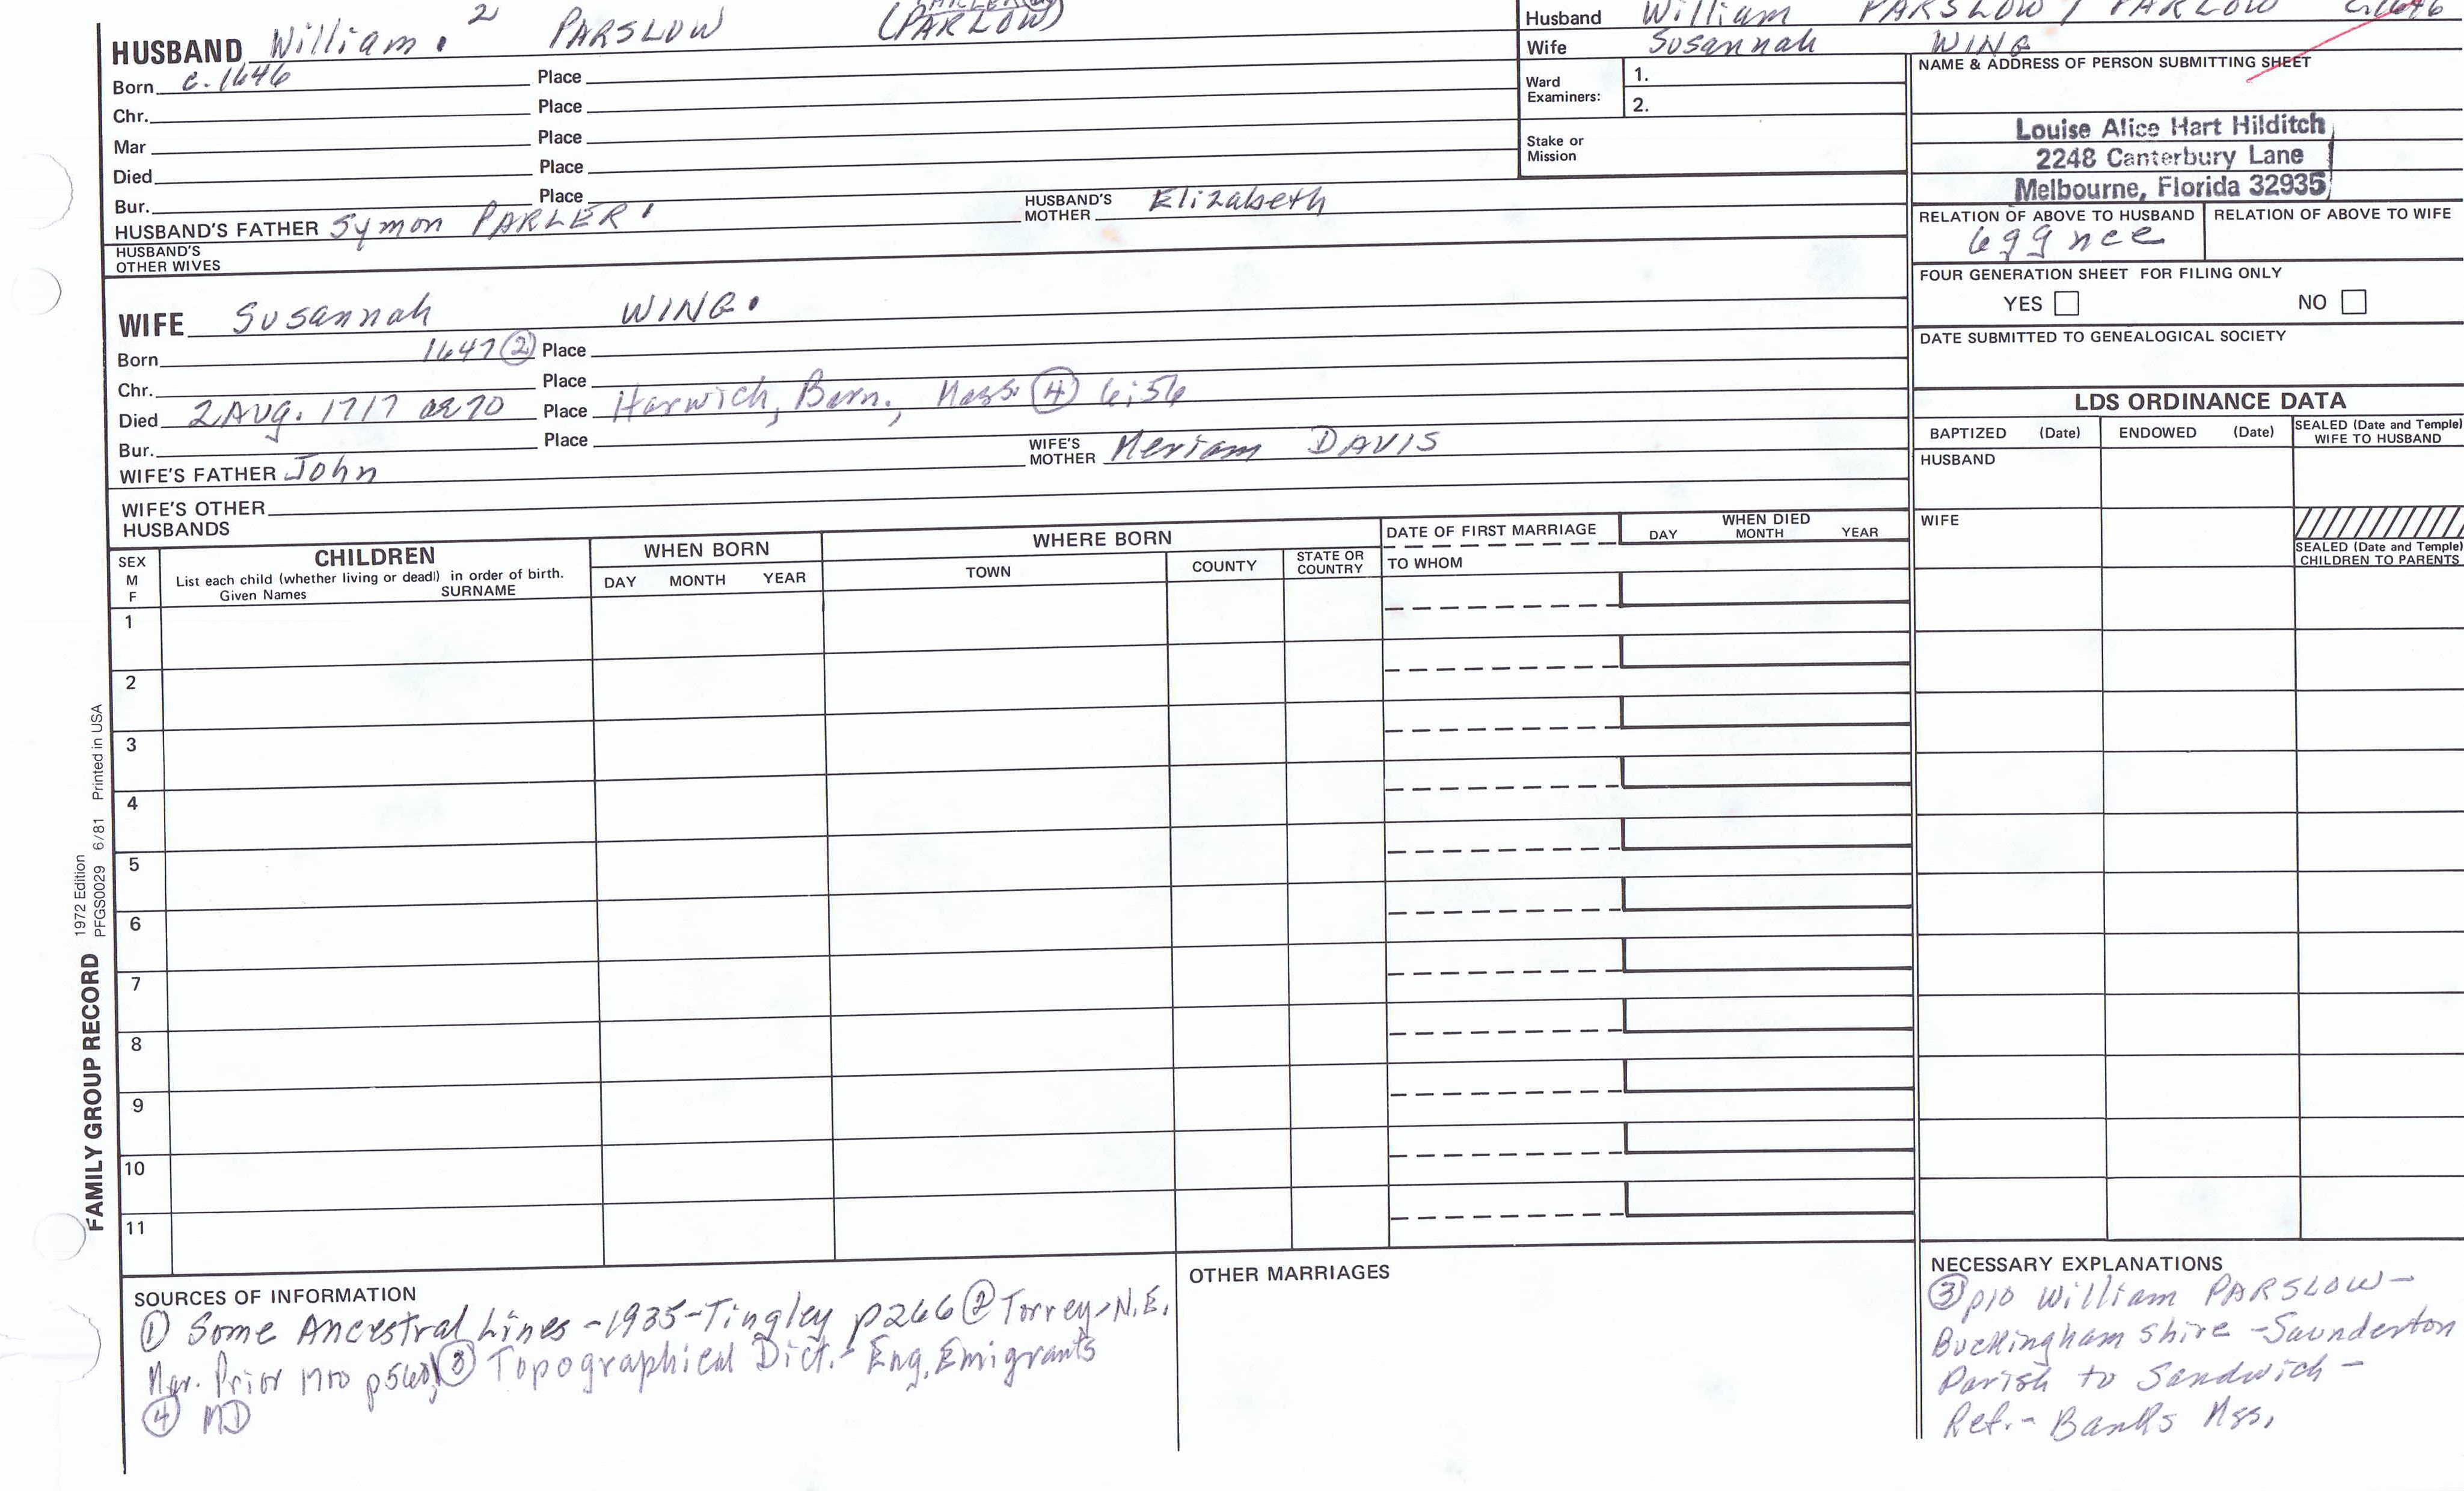 HUSBAND William. 2 PARSLOW (PARLOW)
Born c. 1646 Place
Chr. Place
Mar Place
Died Place
Bur. Place
HUSBAND'S FATHER Symon PARLER' HUSBAND'S MOTHER Elizabeth
HUSBAND'S OTHER WIVES
WIFE Susannah WING.
Born 1647 (2) Place
Chr. Place
Died 2 AUG. 1717 ae 70 Place Harwich, Barn., Mass. (4) 6:56
Bur. Place
WIFE'S FATHER John WIFE'S MOTHER Meriam DAVIS
WIFE'S OTHER HUSBANDS
Husband William PARSLOW / PARLOW c. 1646
Wife Susannah WING
Ward Examiners: 1.
2.
Stake or Mission
NAME & ADDRESS OF PERSON SUBMITTING SHEET
Louise Alice Hart Hilditch
2248 Canterbury Lane
Melbourne, Florida 32935
RELATION OF ABOVE TO HUSBAND RELATION OF ABOVE TO WIFE
6 gg nce
FOUR GENERATION SHEET FOR FILING ONLY
YES NO
DATE SUBMITTED TO GENEALOGICAL SOCIETY
LDS ORDINANCE DATA
BAPTIZED (Date) ENDOWED (Date) SEALED (Date and Temple) WIFE TO HUSBAND
HUSBAND
WIFE
SEALED (Date and Temple) CHILDREN TO PARENTS
SEX M F
CHILDREN
List each child (whether living or dead) in order of birth.
Given Names SURNAME
WHEN BORN
DAY MONTH YEAR
WHERE BORN
TOWN COUNTY STATE OR COUNTRY
DATE OF FIRST MARRIAGE
TO WHOM
WHEN DIED
DAY MONTH YEAR
1
2
3
4
5
6
7
8
9
10
11
FAMILY GROUP RECORD 1972 Edition
PFGS0029 6/81 Printed in USA
SOURCES OF INFORMATION
(1) Some Ancestral Lines - 1935 - Tingley p266 (2) Torrey - N.E.
Mar. Prior 1700 p560, (3) Topographical Dict. - Eng. Emigrants
(4) MD
OTHER MARRIAGES
NECESSARY EXPLANATIONS
(3) p10 William PARSLOW -
Buckinghamshire - Saunderton
Parish to Sandwich -
Ref. - Banks Mss.